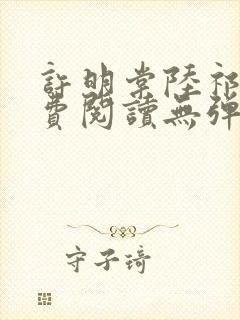 許明棠陸祁
費閱讀無彈
守子琦